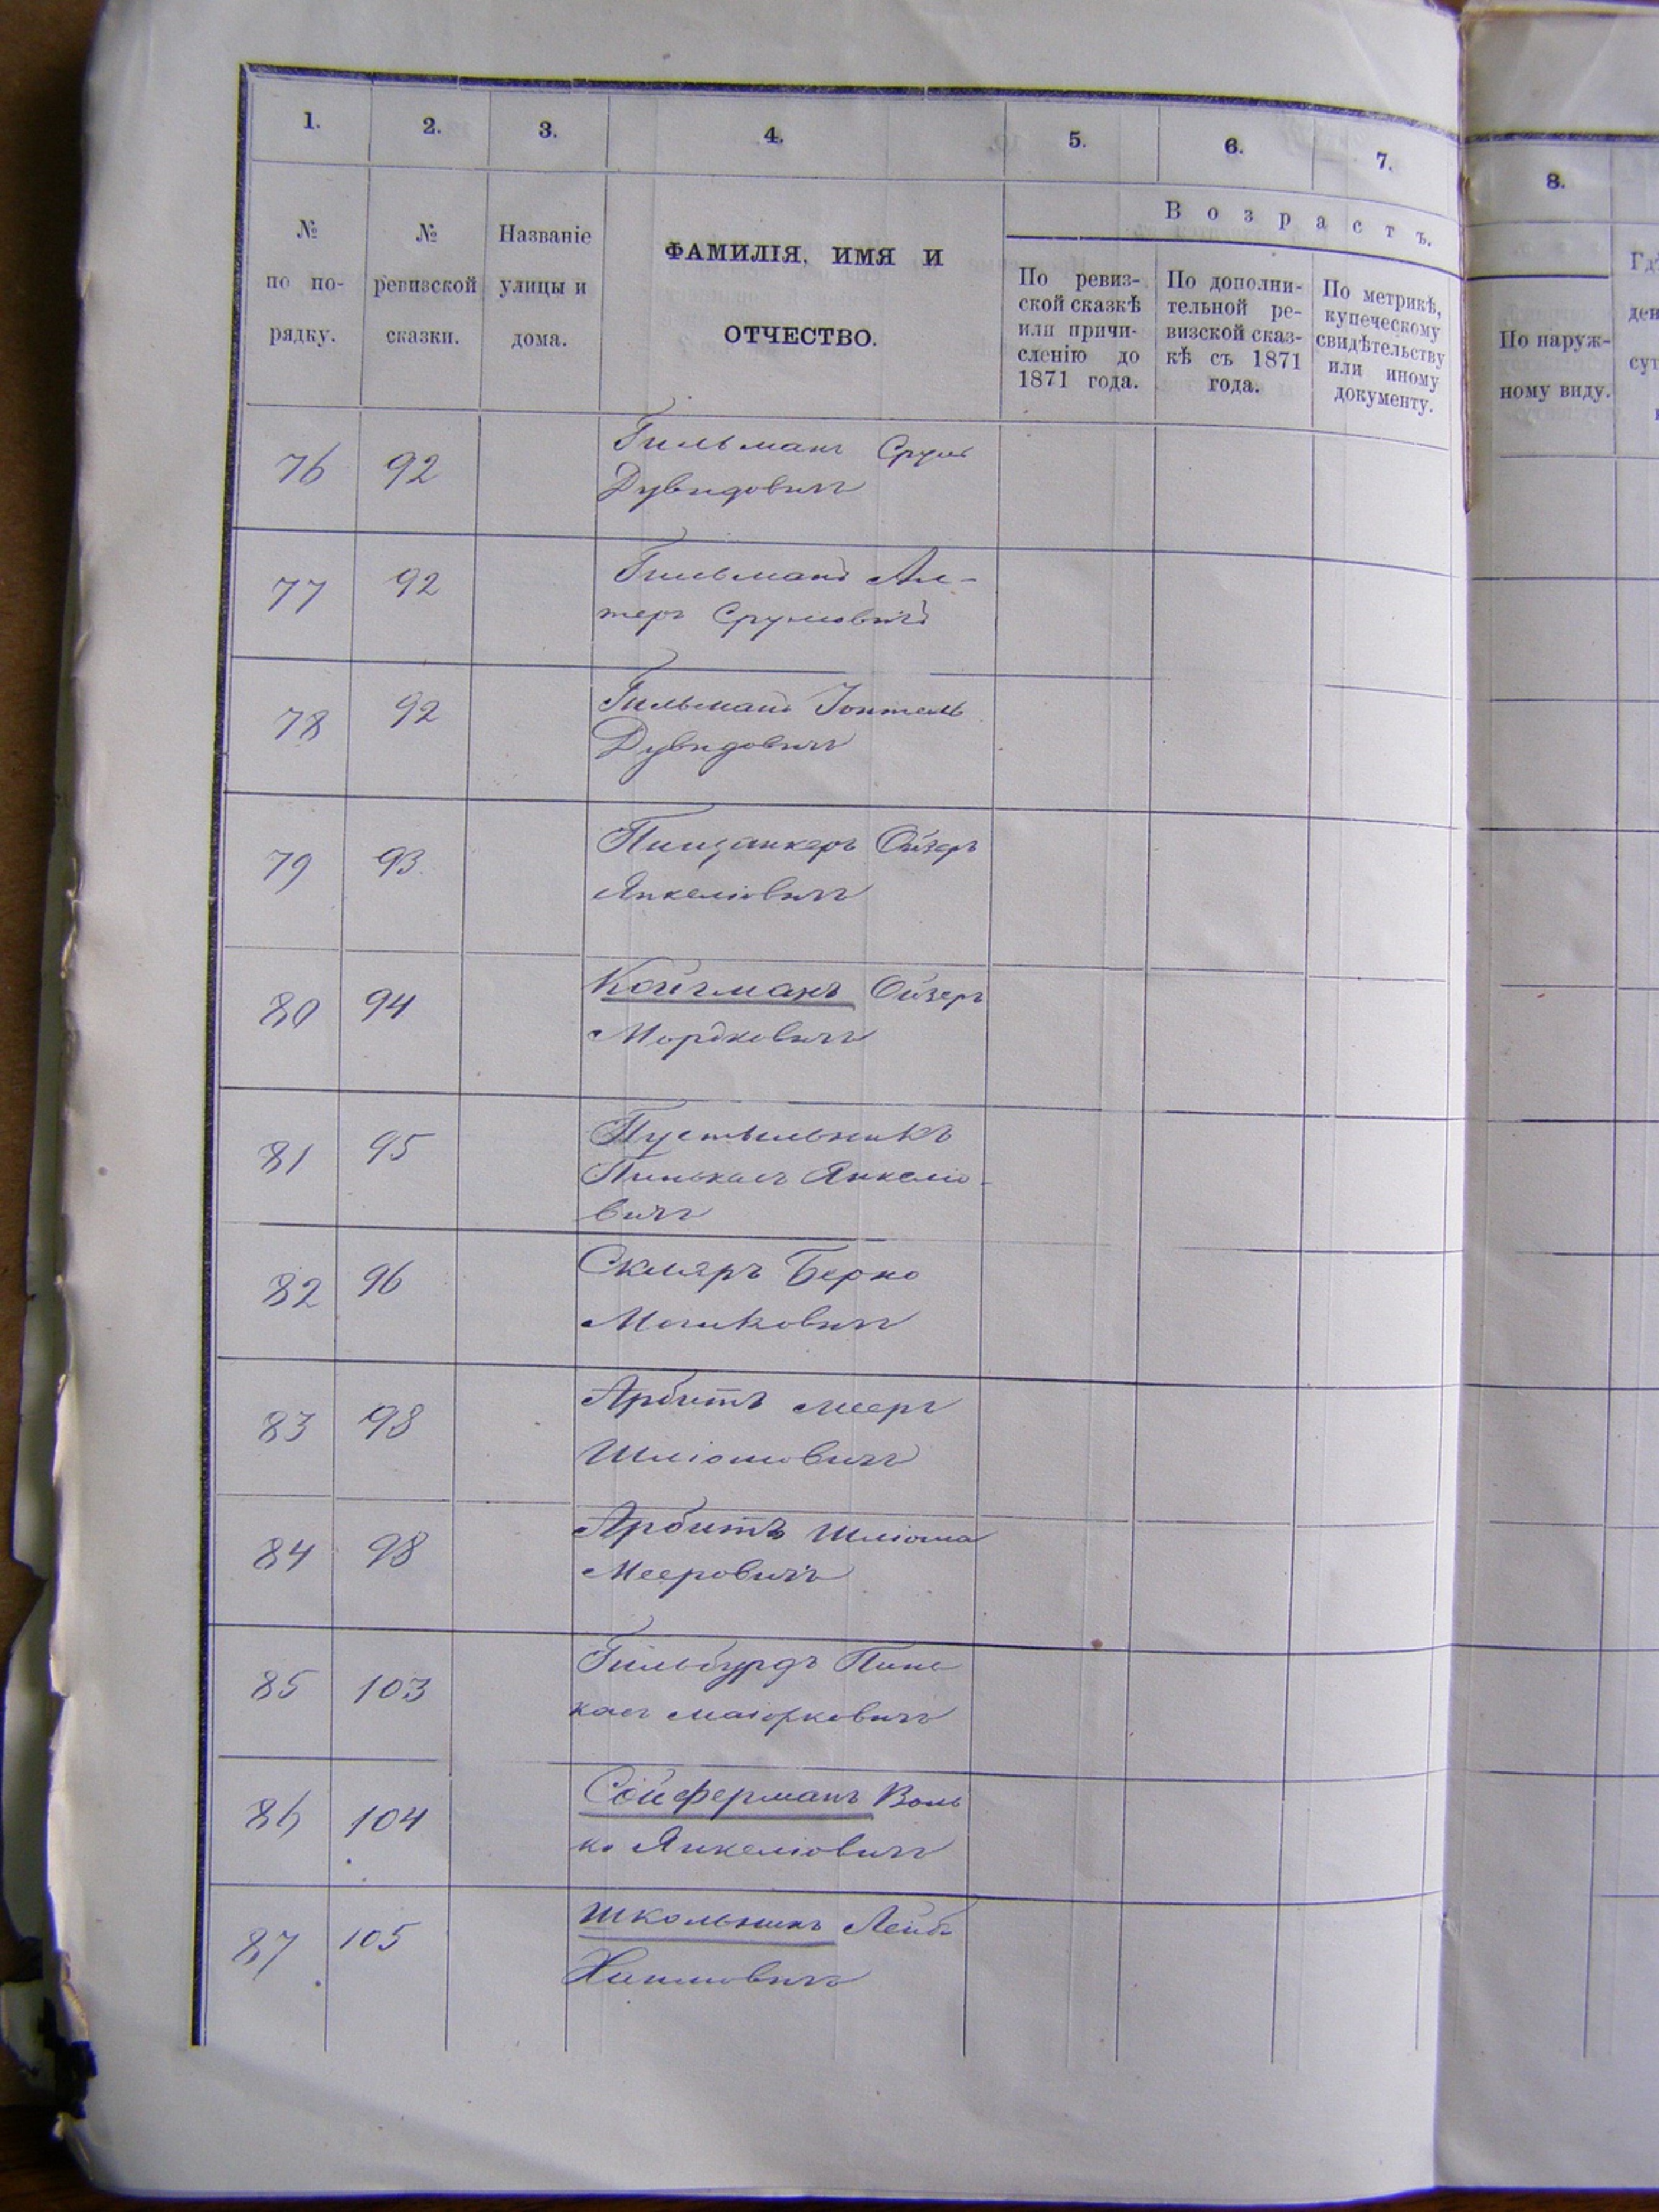 1. 2. 3. 4. 5. 6. 7. 8.
Возрастъ.
№ по по-рядку.
№ ревизской сказки.
Названіе улицы и дома.
ФАМИЛІЯ, ИМЯ И
ОТЧЕСТВО.
По ревиз-
ской сказкѣ
или причи-
сленію до
1871 года.
По дополни-
тельной ре-
визской сказ-
кѣ съ 1871
года.
По метрикѣ,
купеческому
свидѣтельству
или иному
документу.
По наруж-
ному виду.
76 92 Гильманъ Сруль
Дувидовичъ
77 92 Гильманъ Ал-
теръ Срулювичъ
78 92 Гильманъ Іонтель
Дувидовичъ
79 93 Ойзеръ
Янкеліовичъ
80 94 Койгманъ Ойзеръ
Мордковичъ
81 95 Пустыльникъ
Пинькасъ Янкеліо-
вичъ
82 96 Скляръ Берко
Мошковичъ
83 98 Арбитъ Мееръ
Шліомовичъ
84 98 Арбитъ Шліома
Мееровичъ
85 103 Гильбурдъ Пинь
касъ Маіорковичъ
86 104 Сойферманъ Воль
ко Янкеліовичъ
87 105 Школьникъ Лейб
Хаимовичъ